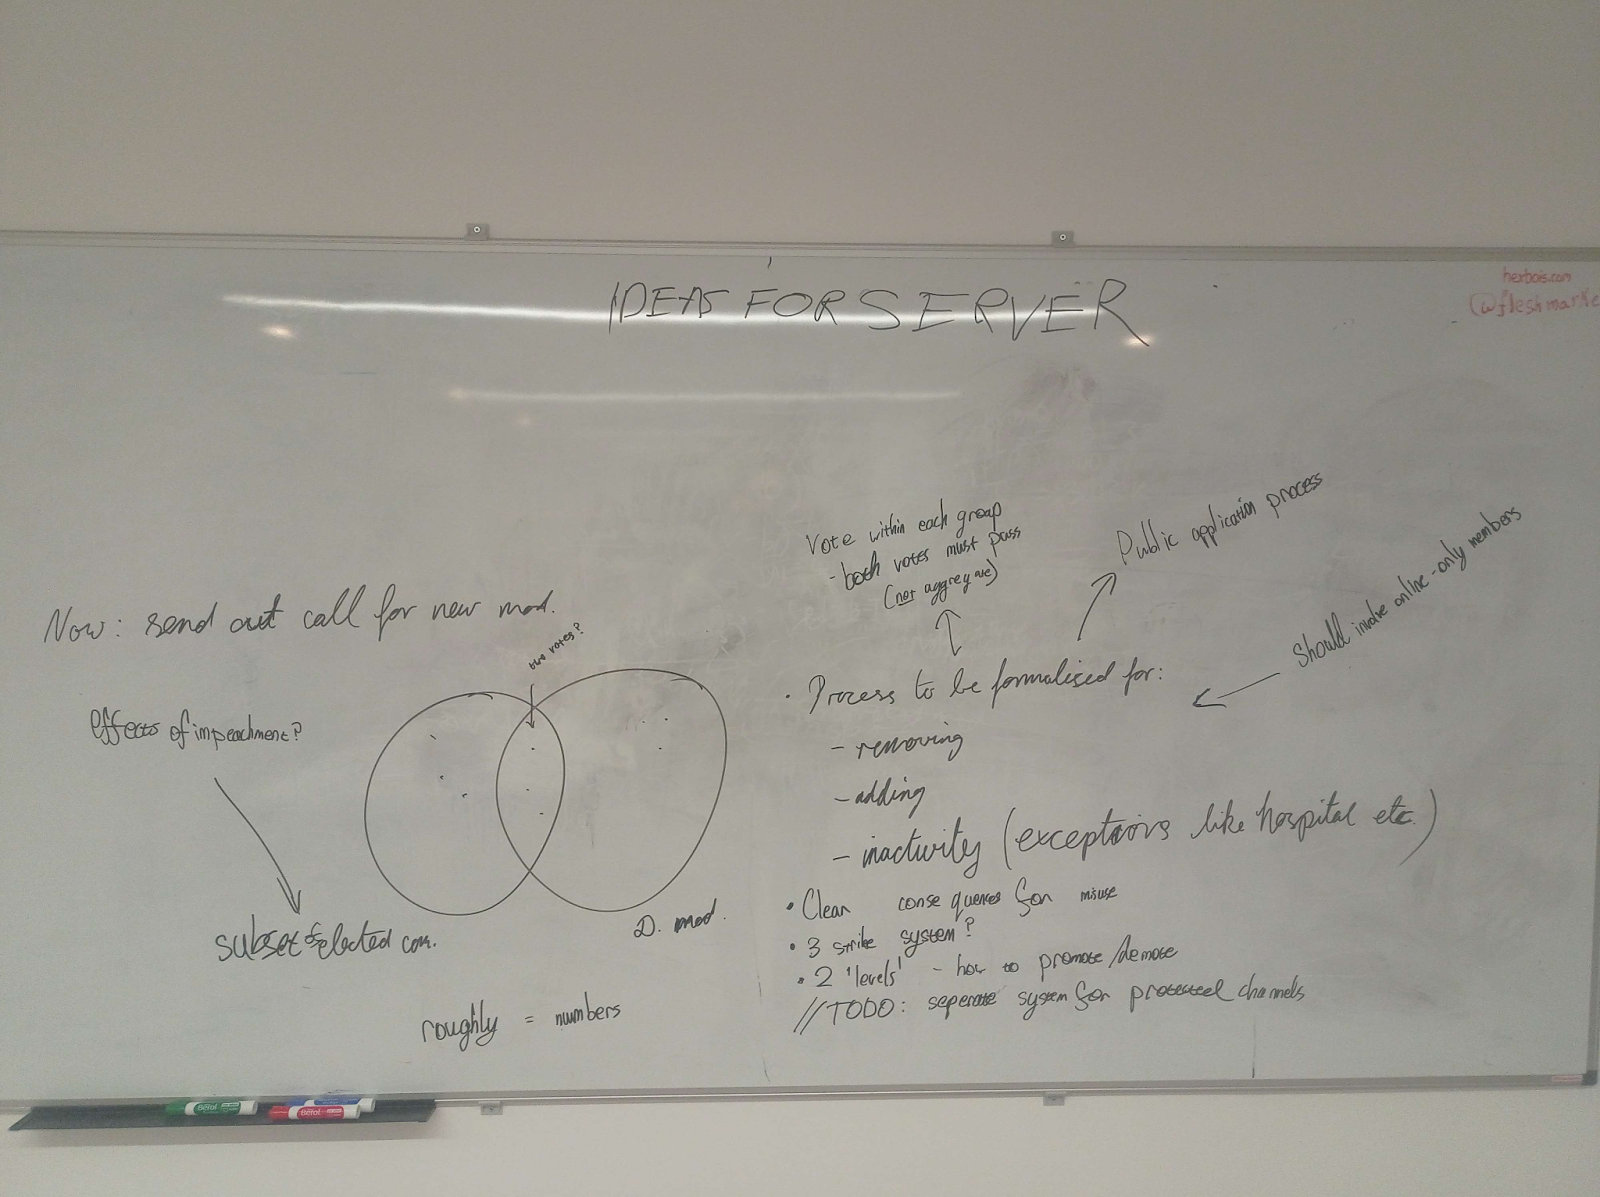 IDEAS FOR SERVER
hexbois.com
@fleshmarke
Vote within each group
- both votes must pass
(not aggregate)
Public application process
Should involve online-only members
Now: send out call for new mod.
two votes?
effects of impeachment?
subset of elected com.
D. mod.
roughly = numbers
• Process to be formalised for:
- removing
- adding
- inactivity (exceptions like hospital etc.)
• Clear consequences for misuse
• 3 strike system?
• 2 'levels' - how to promote/demote
//TODO: seperate system for protected channels
Berol
Berol